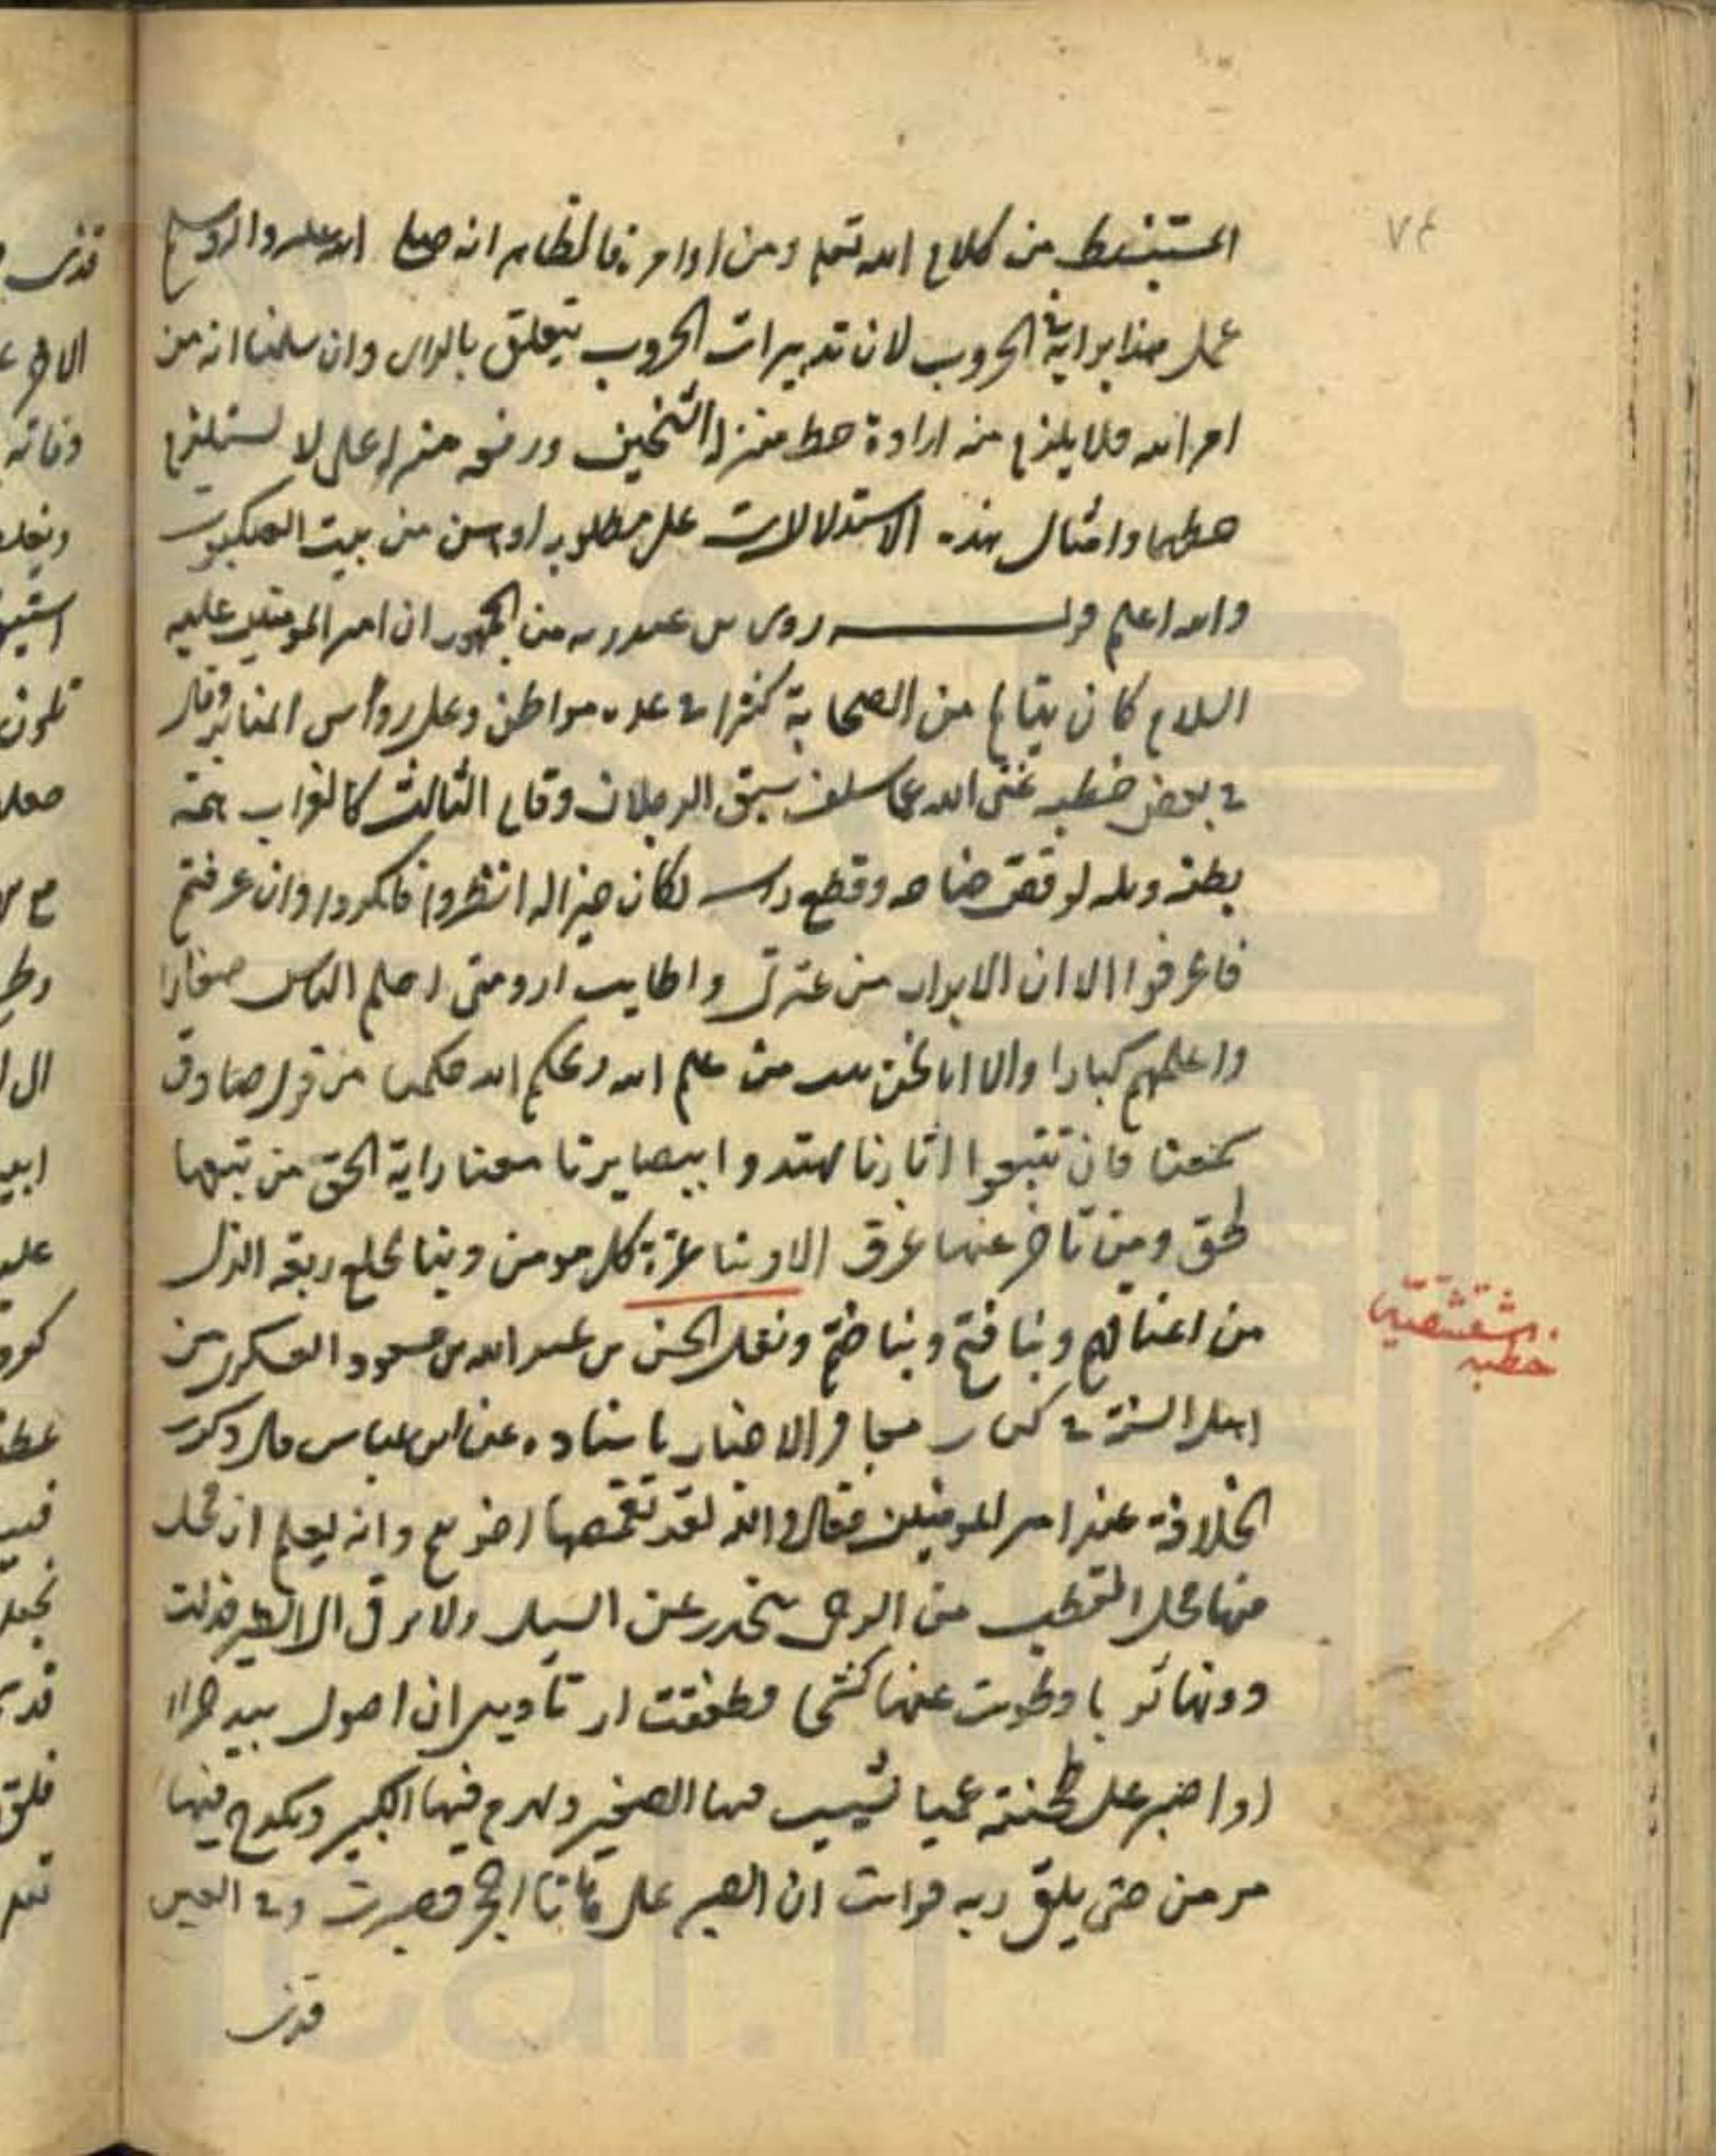 ٧٤
المستنبط من كلام الله تعم ومن اوامره فالظاهر انه صلى الله عليه واله وسلم
عمل هذا برايه في الحروب لان تدبيرات الحروب يتعلق بالراى وان سلمنا انه من
امر الله فلا يلزم منه ارادة حط منزلة الشخين ورفعه منزلة على لا يستلزم
حطهما وامثال هذه الاستدلالات على مطلوبه اوهن من بيت العنكبوت
والله اعلم قوله روى بن عبد ربه من الجمهور ان امير المومنين عليه
السلام كان يتالم من الصحابة كثيرا في عده مواطن وعلى رؤاس المنابر وقال
في بعض خطبه عفى الله عما سلف سبق الرجلان وقام الثالث كالغراب همته
بطنه ويله لو قص جناحه وقطع راسه لكان خيرا له انظروا فانكروا وان عرفتم
فاعرفوا الا ان الابرار من عترتى واطايب ارومتى احلم الناس صغارا
واعلمهم كبارا والا انا نحن بيت من علم الله وبحكم الله حكمنا من قول صادق
سمعنا فان تتبعوا اثارنا تهتدوا ببصايرنا معنا راية الحق من تبعها
لحق ومن تاخر عنها غرق الا وبنا عزة كل مومن وبنا نخلع ربقه الذل
من اعناقكم وبنا فتح وبنا ختم ونقل الحسن بن عبد الله بن مسعود العسكرى من
اهل السنة في كتاب معانى الاخبار باسناده عن ابن عباس قال ذكرت
الخلافة عند امير المومنين فقال والله لقد تقمصها اخو تيم وانه ليعلم ان محلى
منها محل القطب من الرحى ينحدر عن السيل ولا يرقى الى الطير فدلت
دونها ثوبا وطويت عنها كشحا وطفقت ارتاء بين ان اصول بيد جذاء
او اصبر على طخية عميا يشيب فيها الصغير ويهرم فيها الكبير ويكدح فيها
مومن حتى يلقى ربه فرايت ان الصبر على هاتا احجى فصبرت وفي العين
قذى
خطبه
شقشقيه